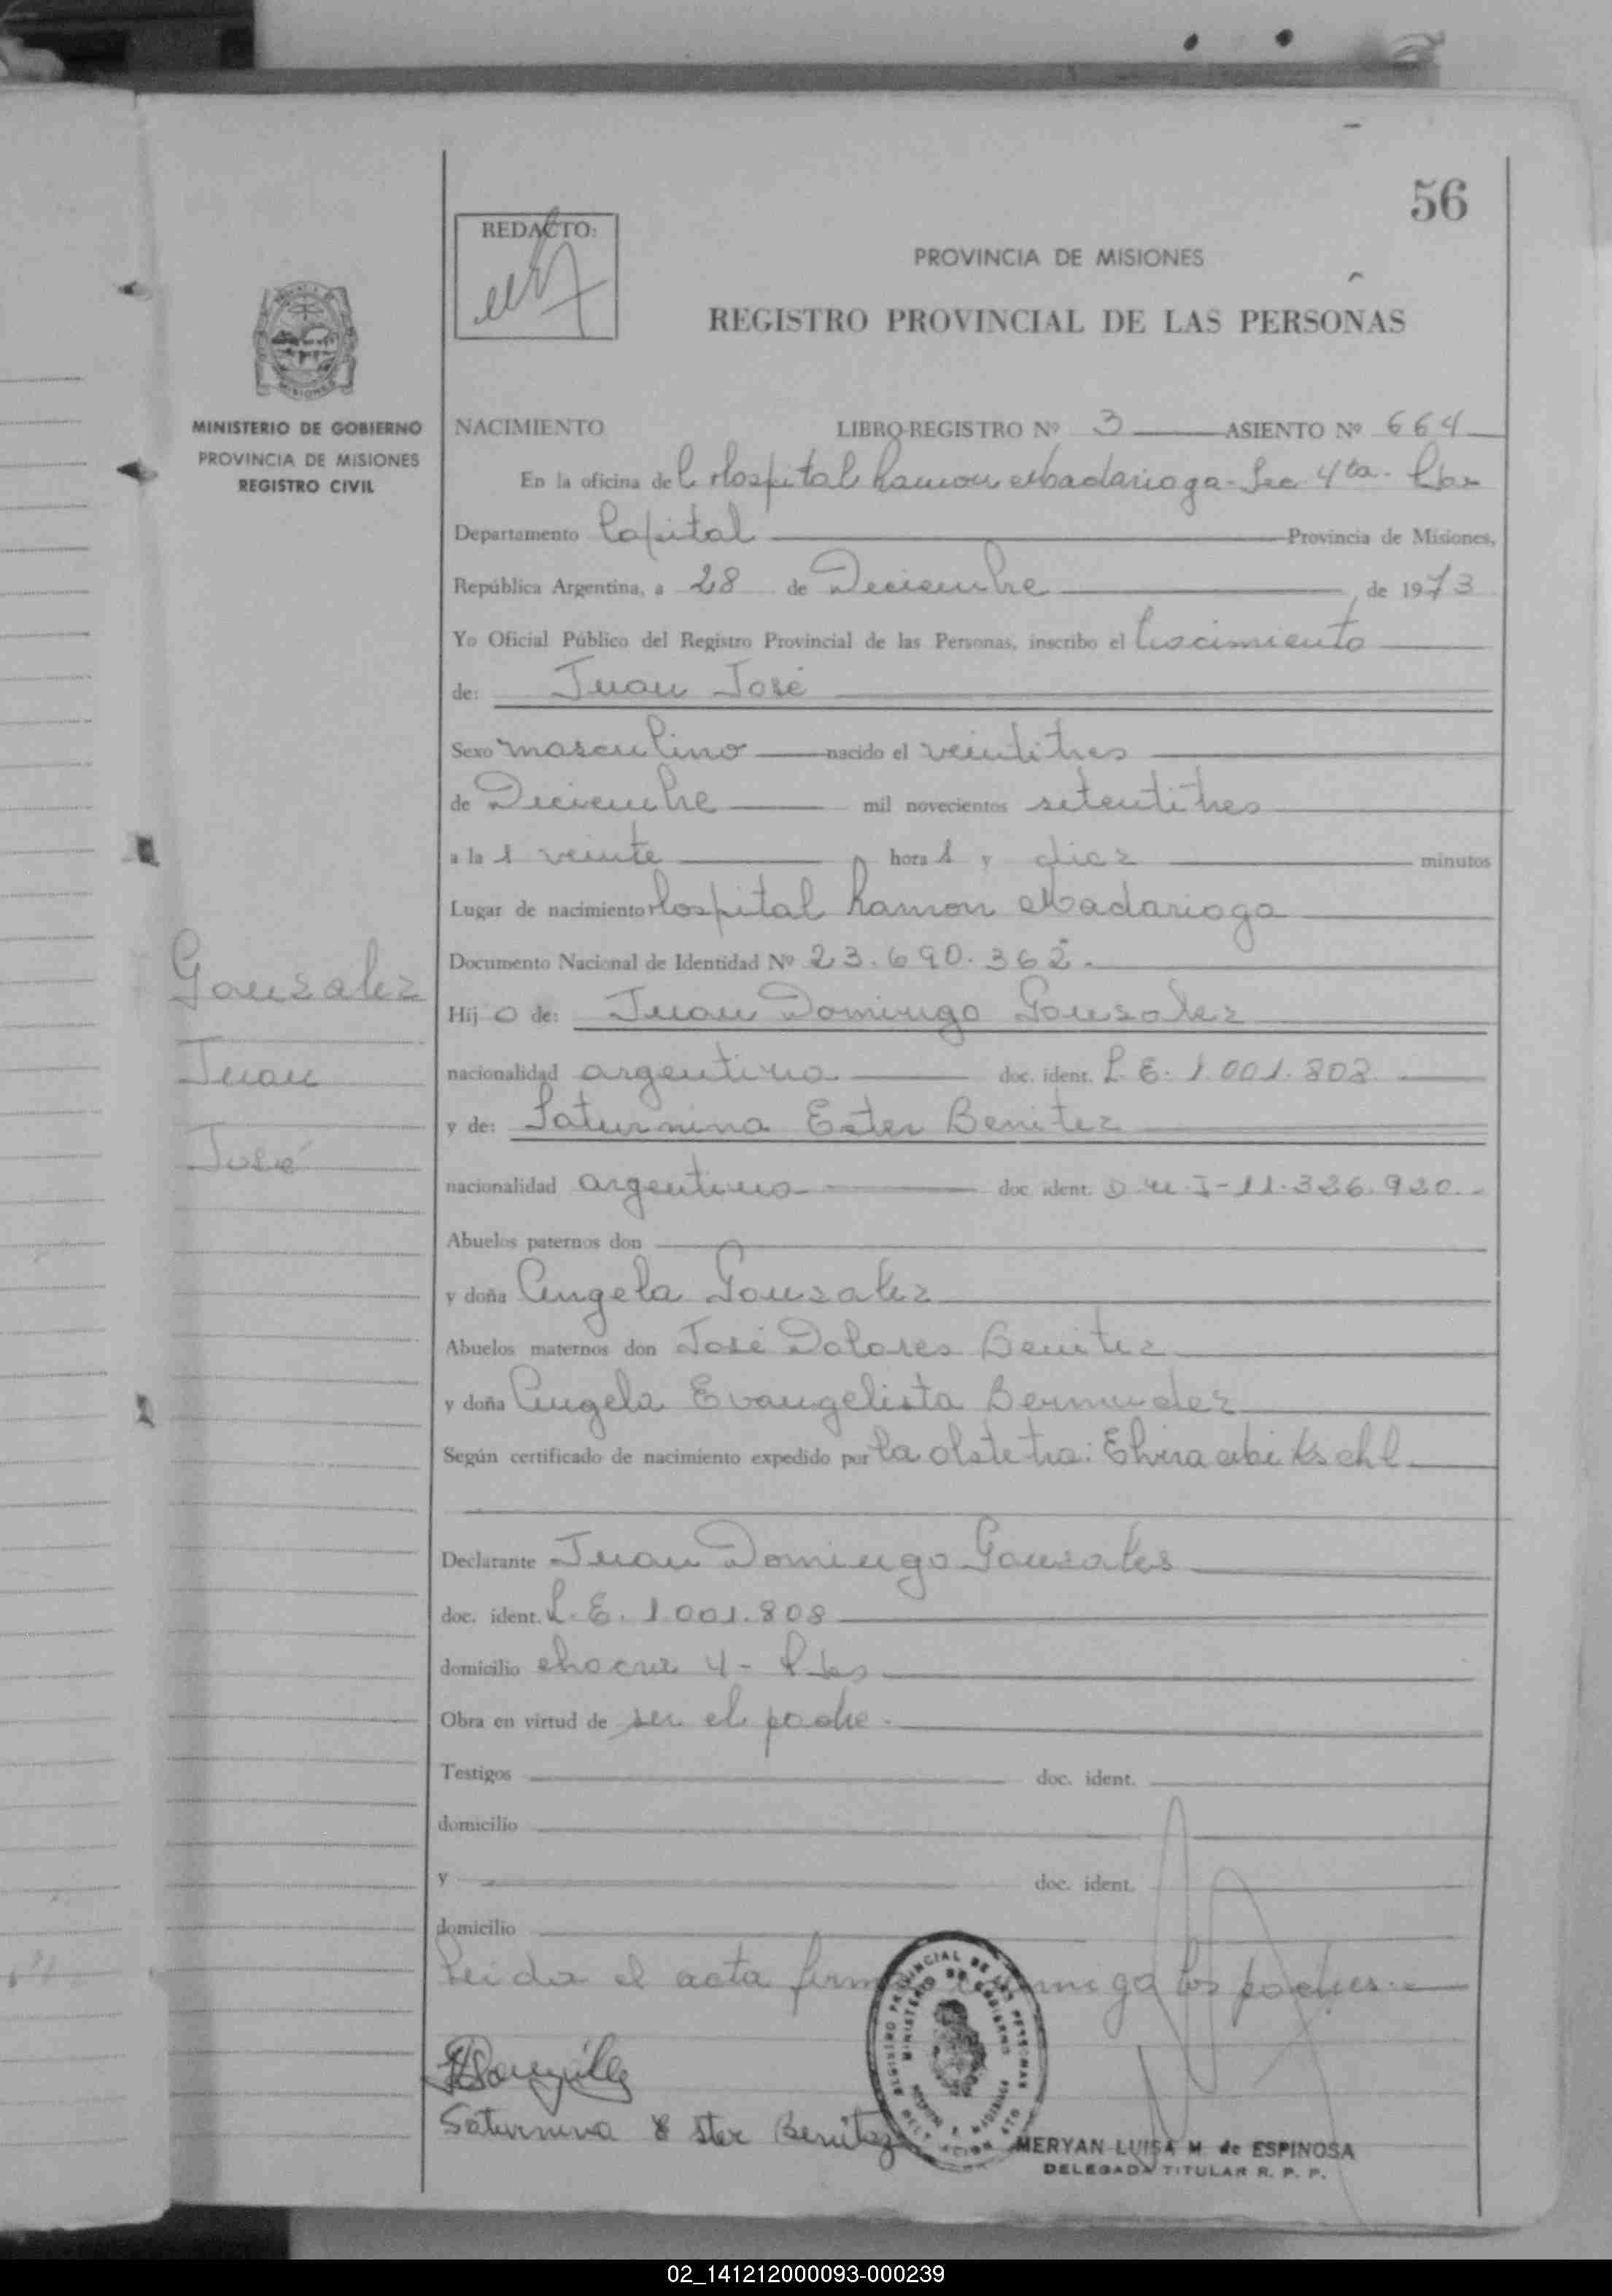 56
REDACTO:
PROVINCIA DE MISIONES
REGISTRO PROVINCIAL DE LAS PERSONAS
MINISTERIO DE GOBIERNO
PROVINCIA DE MISIONES
REGISTRO CIVIL
NACIMIENTO LIBRO-REGISTRO Nº 3 ASIENTO Nº 664
En la oficina del Hospital Ramon Madariaga - Sec 4ta -
Departamento Capital Provincia de Misiones,
República Argentina, a 28 de Diciembre de 1973
Yo Oficial Público del Registro Provincial de las Personas, inscribo el nacimiento
de: Juan José
Sexo masculino nacido el veintitres
de Diciembre mil novecientos setentitres
a la s veinte hora s y diez minutos
Lugar de nacimiento Hospital Ramon Madariaga
Documento Nacional de Identidad Nº 23.690.362.-
Gonzalez
Juan
José
Hij o de: Juan Domingo Gonzalez
nacionalidad argentina doc. ident. L.E. 1.001.808
y de: Saturnina Ester Benitez
nacionalidad argentina doc. ident. D.N.I - 11.326.920.-
Abuelos paternos don
y doña Angela Gonzalez
Abuelos maternos don José Dolores Benitez
y doña Angela Evangelista Bermudez
Según certificado de nacimiento expedido por la obstetra: Elvira
Declarante Juan Domingo Gonzales
doc. ident. L.E. 1.001.808
domicilio chacra 4 - Pdas
Obra en virtud de ser el padre.-
Testigos doc. ident.
domicilio
y doc. ident.
domicilio
Leida el acta conmigo los padres.-
Saturnina Ester Benitez
REGISTRO PROVINCIAL DE LAS PERSONAS
MINISTERIO DE GOBIERNO
MERYAN LUISA M. de ESPINOSA
DELEGADA TITULAR R. P. P.
02_141212000093-000239